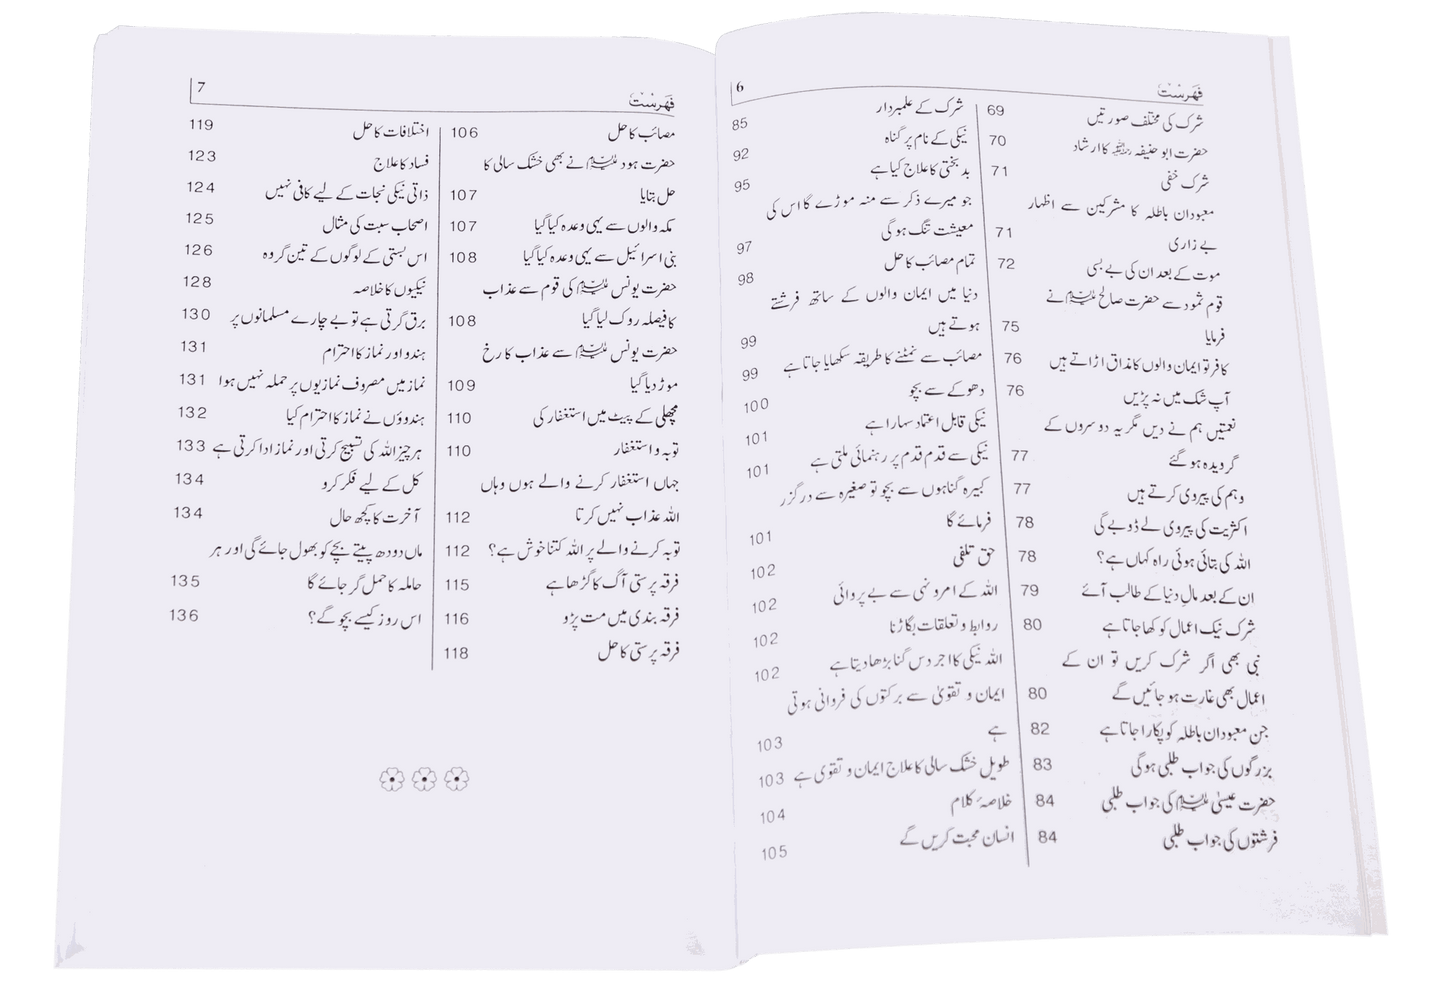 فہرست
6
شرک کی مختلف صورتیں 69
حضرت ابو حنیفہ رحمہ اللہ کا ارشاد 70
شرک خفی 71
معبودان باطلہ کا مشرکین سے اظہار
بے زاری 71
موت کے بعد ان کی بے بسی 72
قوم ثمود سے حضرت صالح علیہ السلام نے
فرمایا 75
کافر تو ایمان والوں کا مذاق اڑاتے ہیں 76
آپ شک میں نہ پڑیں 76
نعمتیں ہم نے دیں مگر یہ دوسروں کے
گرویدہ ہو گئے 77
وہم کی پیروی کرتے ہیں 77
اکثریت کی پیروی لے ڈوبے گی 78
اللہ کی بتائی ہوئی راہ کہاں ہے؟ 78
ان کے بعد مالِ دنیا کے طالب آئے 79
شرک نیک اعمال کو کھا جاتا ہے 80
نبی بھی اگر شرک کریں تو ان کے
اعمال بھی غارت ہو جائیں گے 80
جن معبودان باطلہ کو پکارا جاتا ہے 82
بزرگوں کی جواب طلبی ہوگی 83
حضرت عیسیٰ علیہ السلام کی جواب طلبی 84
فرشتوں کی جواب طلبی 84
شرک کے علمبردار 85
نیکی کے نام پر گناہ 92
بدبختی کا علاج کیا ہے 95
جو میرے ذکر سے منہ موڑے گا اس کی
معیشت تنگ ہوگی 97
تمام مصائب کا حل 98
دنیا میں ایمان والوں کے ساتھ فرشتے
ہوتے ہیں 99
مصائب سے نمٹنے کا طریقہ سکھایا جاتا ہے 99
دھوکے سے بچو 100
نیکی قابل اعتماد سہارا ہے 101
نیکی سے قدم قدم پر رہنمائی ملتی ہے 101
کبیرہ گناہوں سے بچو تو صغیرہ سے درگزر
فرمائے گا 101
حق تلفی 102
اللہ کے امر و نہی سے بے پروائی 102
روابط و تعلقات بگاڑنا 102
اللہ نیکی کا اجر دس گنا بڑھا دیتا ہے 102
ایمان و تقویٰ سے برکتوں کی فروانی ہوتی
ہے 103
طویل خشک سالی کا علاج ایمان و تقوی ہے 103
خلاصۂ کلام 104
انسان محبت کریں گے 105
فہرست
7
مصائب کا حل 106
حضرت ہود علیہ السلام نے بھی خشک سالی کا
حل بتایا 107
مکہ والوں سے یہی وعدہ کیا گیا 107
بنی اسرائیل سے یہی وعدہ کیا گیا 108
حضرت یونس علیہ السلام کی قوم سے عذاب
کا فیصلہ روک لیا گیا 108
حضرت یونس علیہ السلام سے عذاب کا رخ
موڑ دیا گیا 109
مچھلی کے پیٹ میں استغفار کی 110
توبہ و استغفار 110
جہاں استغفار کرنے والے ہوں وہاں
اللہ عذاب نہیں کرتا 112
توبہ کرنے والے پر اللہ کتنا خوش ہے؟ 112
فرقہ پرستی آگ کا گڑھا ہے 115
فرقہ بندی میں مت پڑو 116
فرقہ پرستی کا حل 118
اختلافات کا حل 119
فساد کا علاج 123
ذاتی نیکی نجات کے لیے کافی نہیں 124
اصحاب سبت کی مثال 125
اس بستی کے لوگوں کے تین گروہ 126
نیکیوں کا خلاصہ 128
برق گرتی ہے تو بے چارے مسلمانوں پر 130
ہندو اور نماز کا احترام 131
نماز میں مصروف نمازیوں پر حملہ نہیں ہوا 131
ہندوؤں نے نماز کا احترام کیا 132
ہر چیز اللہ کی تسبیح کرتی اور نماز ادا کرتی ہے 133
کل کے لیے فکر کرو 134
آخرت کا کچھ حال 134
ماں دودھ پیتے بچے کو بھول جائے گی اور ہر
حاملہ کا حمل گر جائے گا 135
اس روز کیسے بچو گے؟ 136